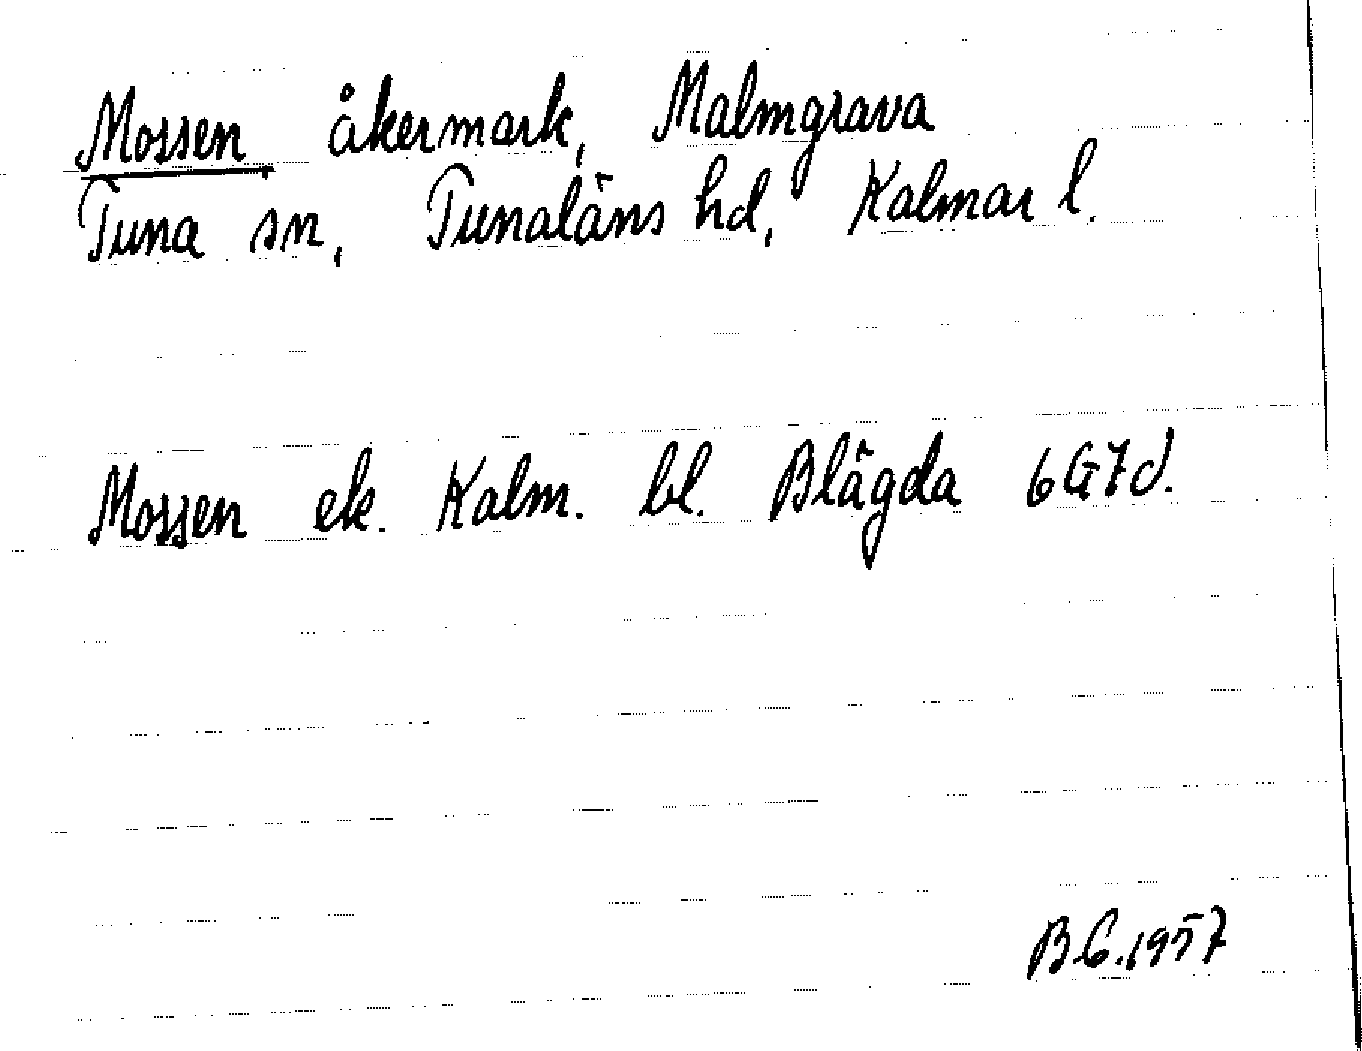 Mossen åkermark, Malmgrava
Tuna sn, Tunaläns hd, Kalmar l.
Mossen ek. Kalm. bl. Blägda 6G7d.
BC.1957